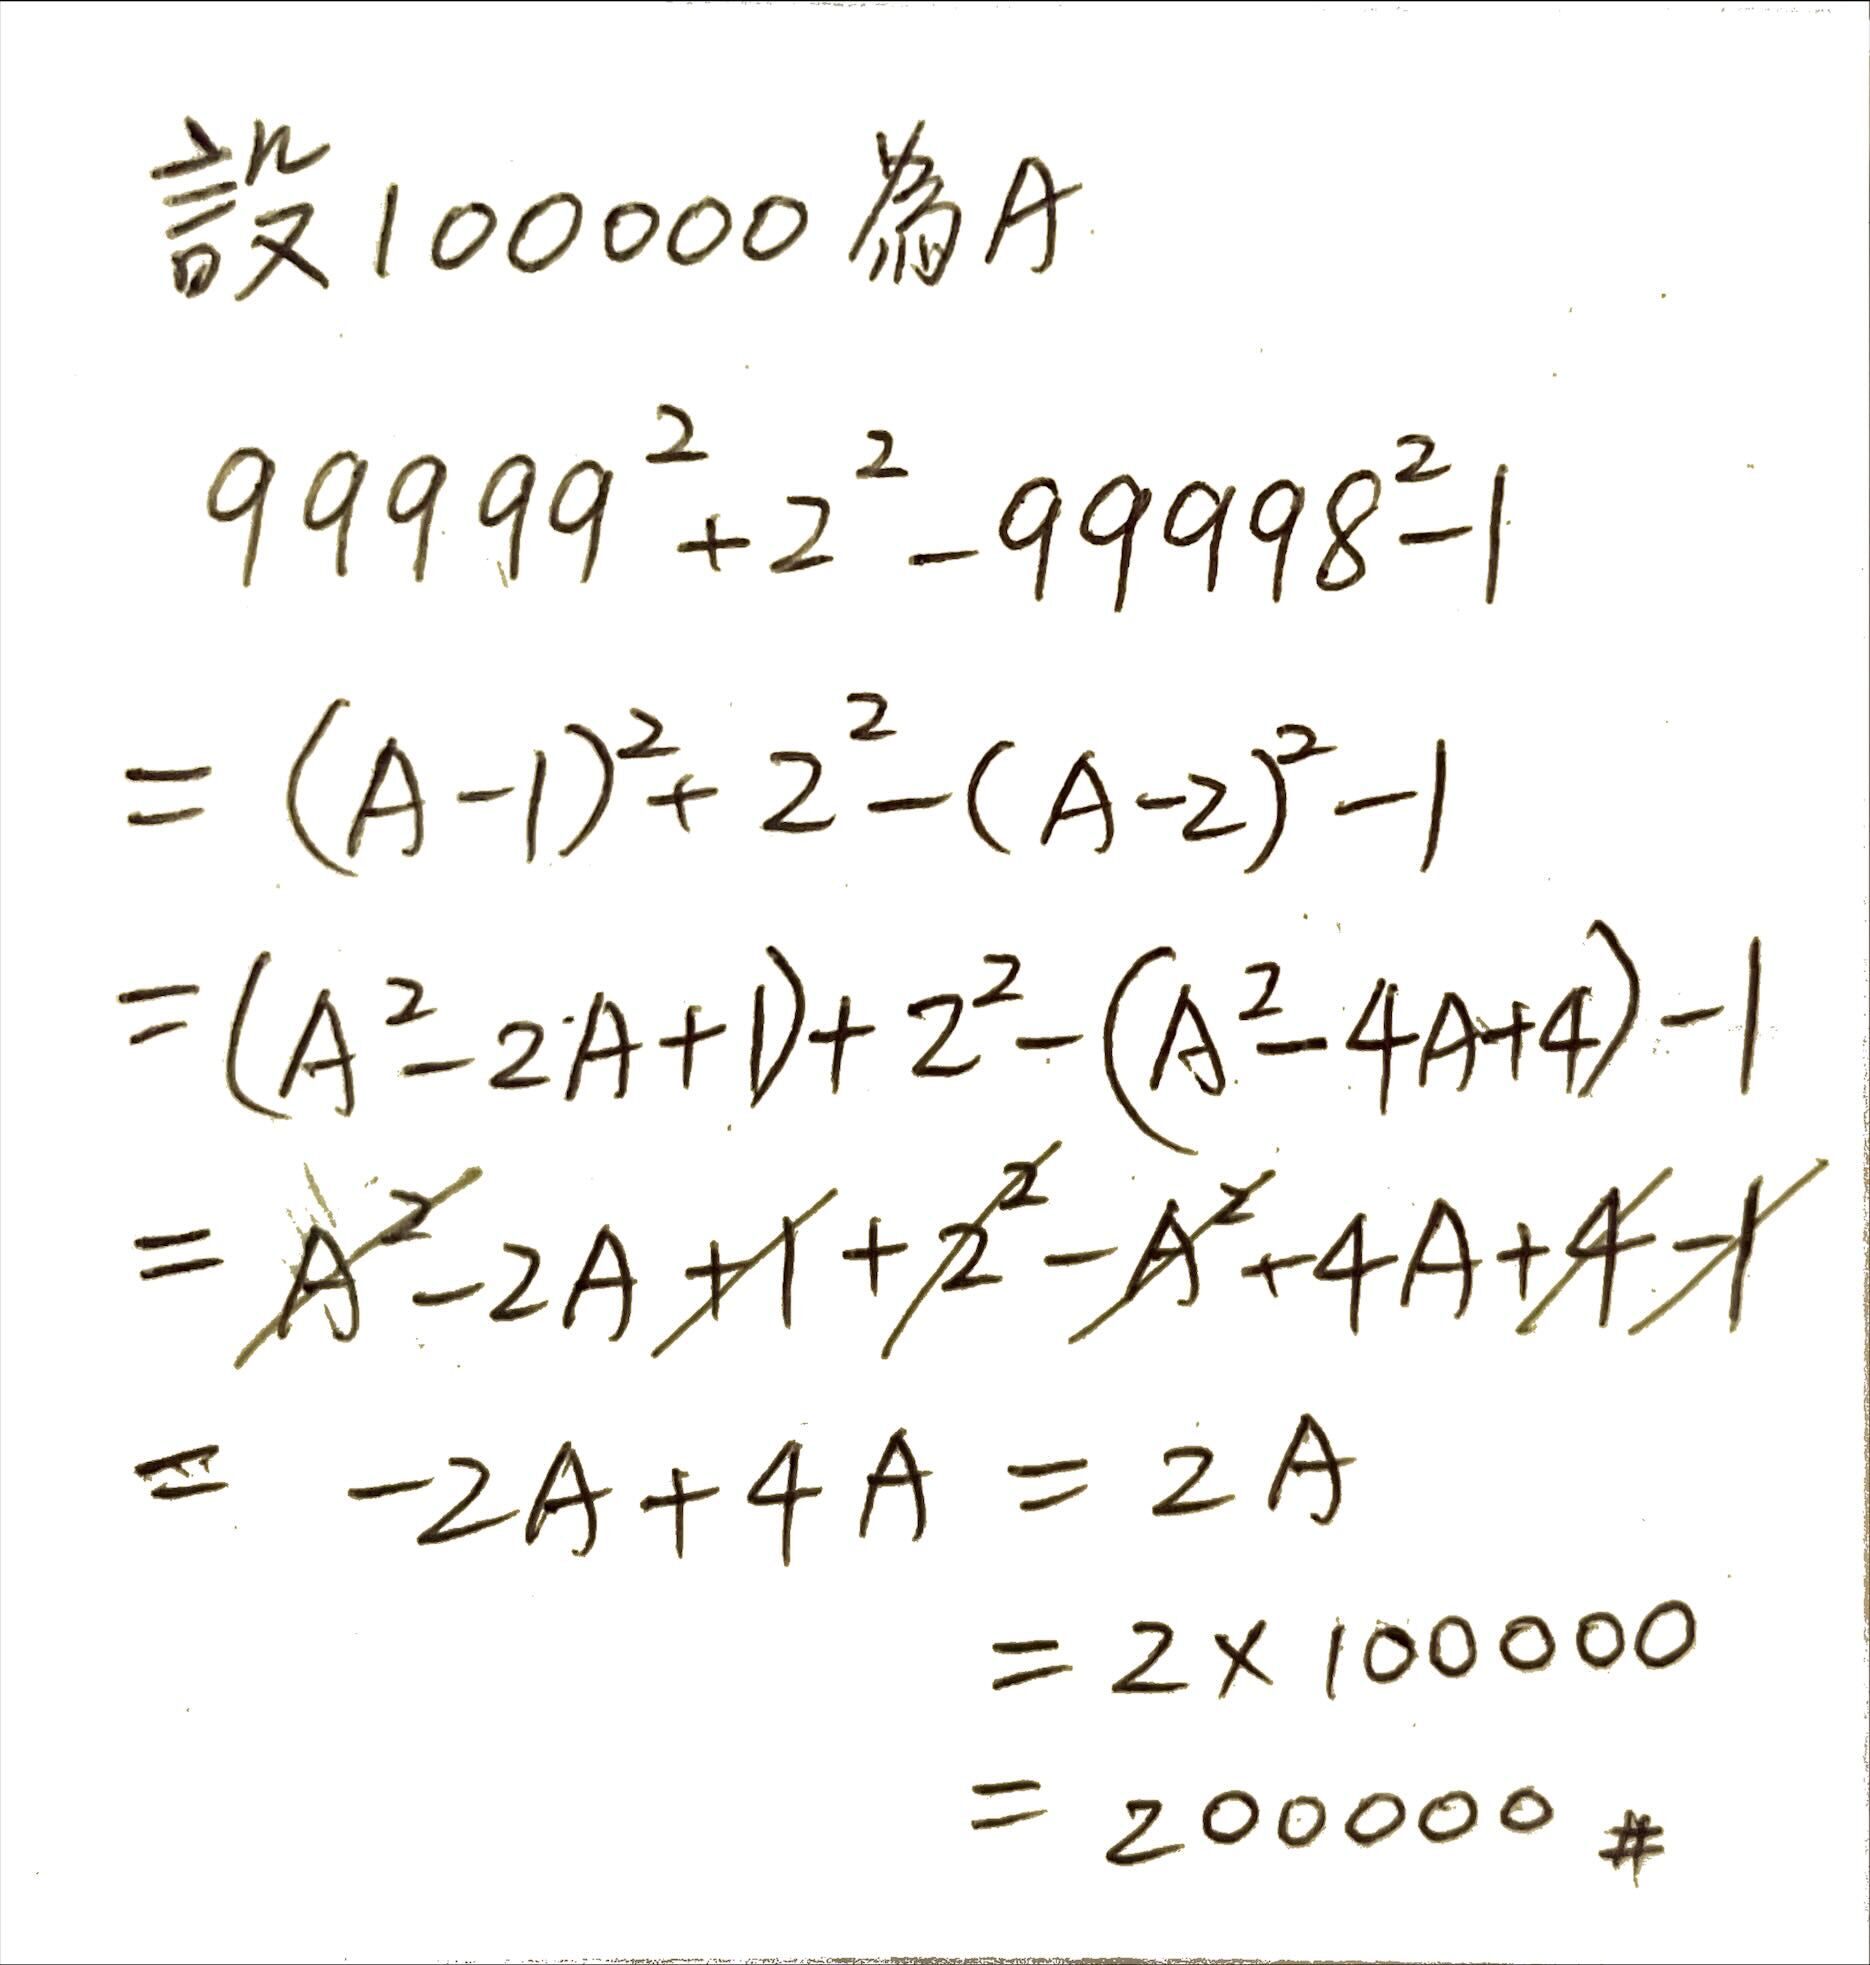 設100000為A
99999²+2²-99998²-1
=(A-1)²+2²-(A-2)²-1
=(A²-2A+1)+2²-(A²-4A+4)-1
=A²-2A+1+2²-A²+4A+4-1
=-2A+4A=2A
=2×100000
=200000#